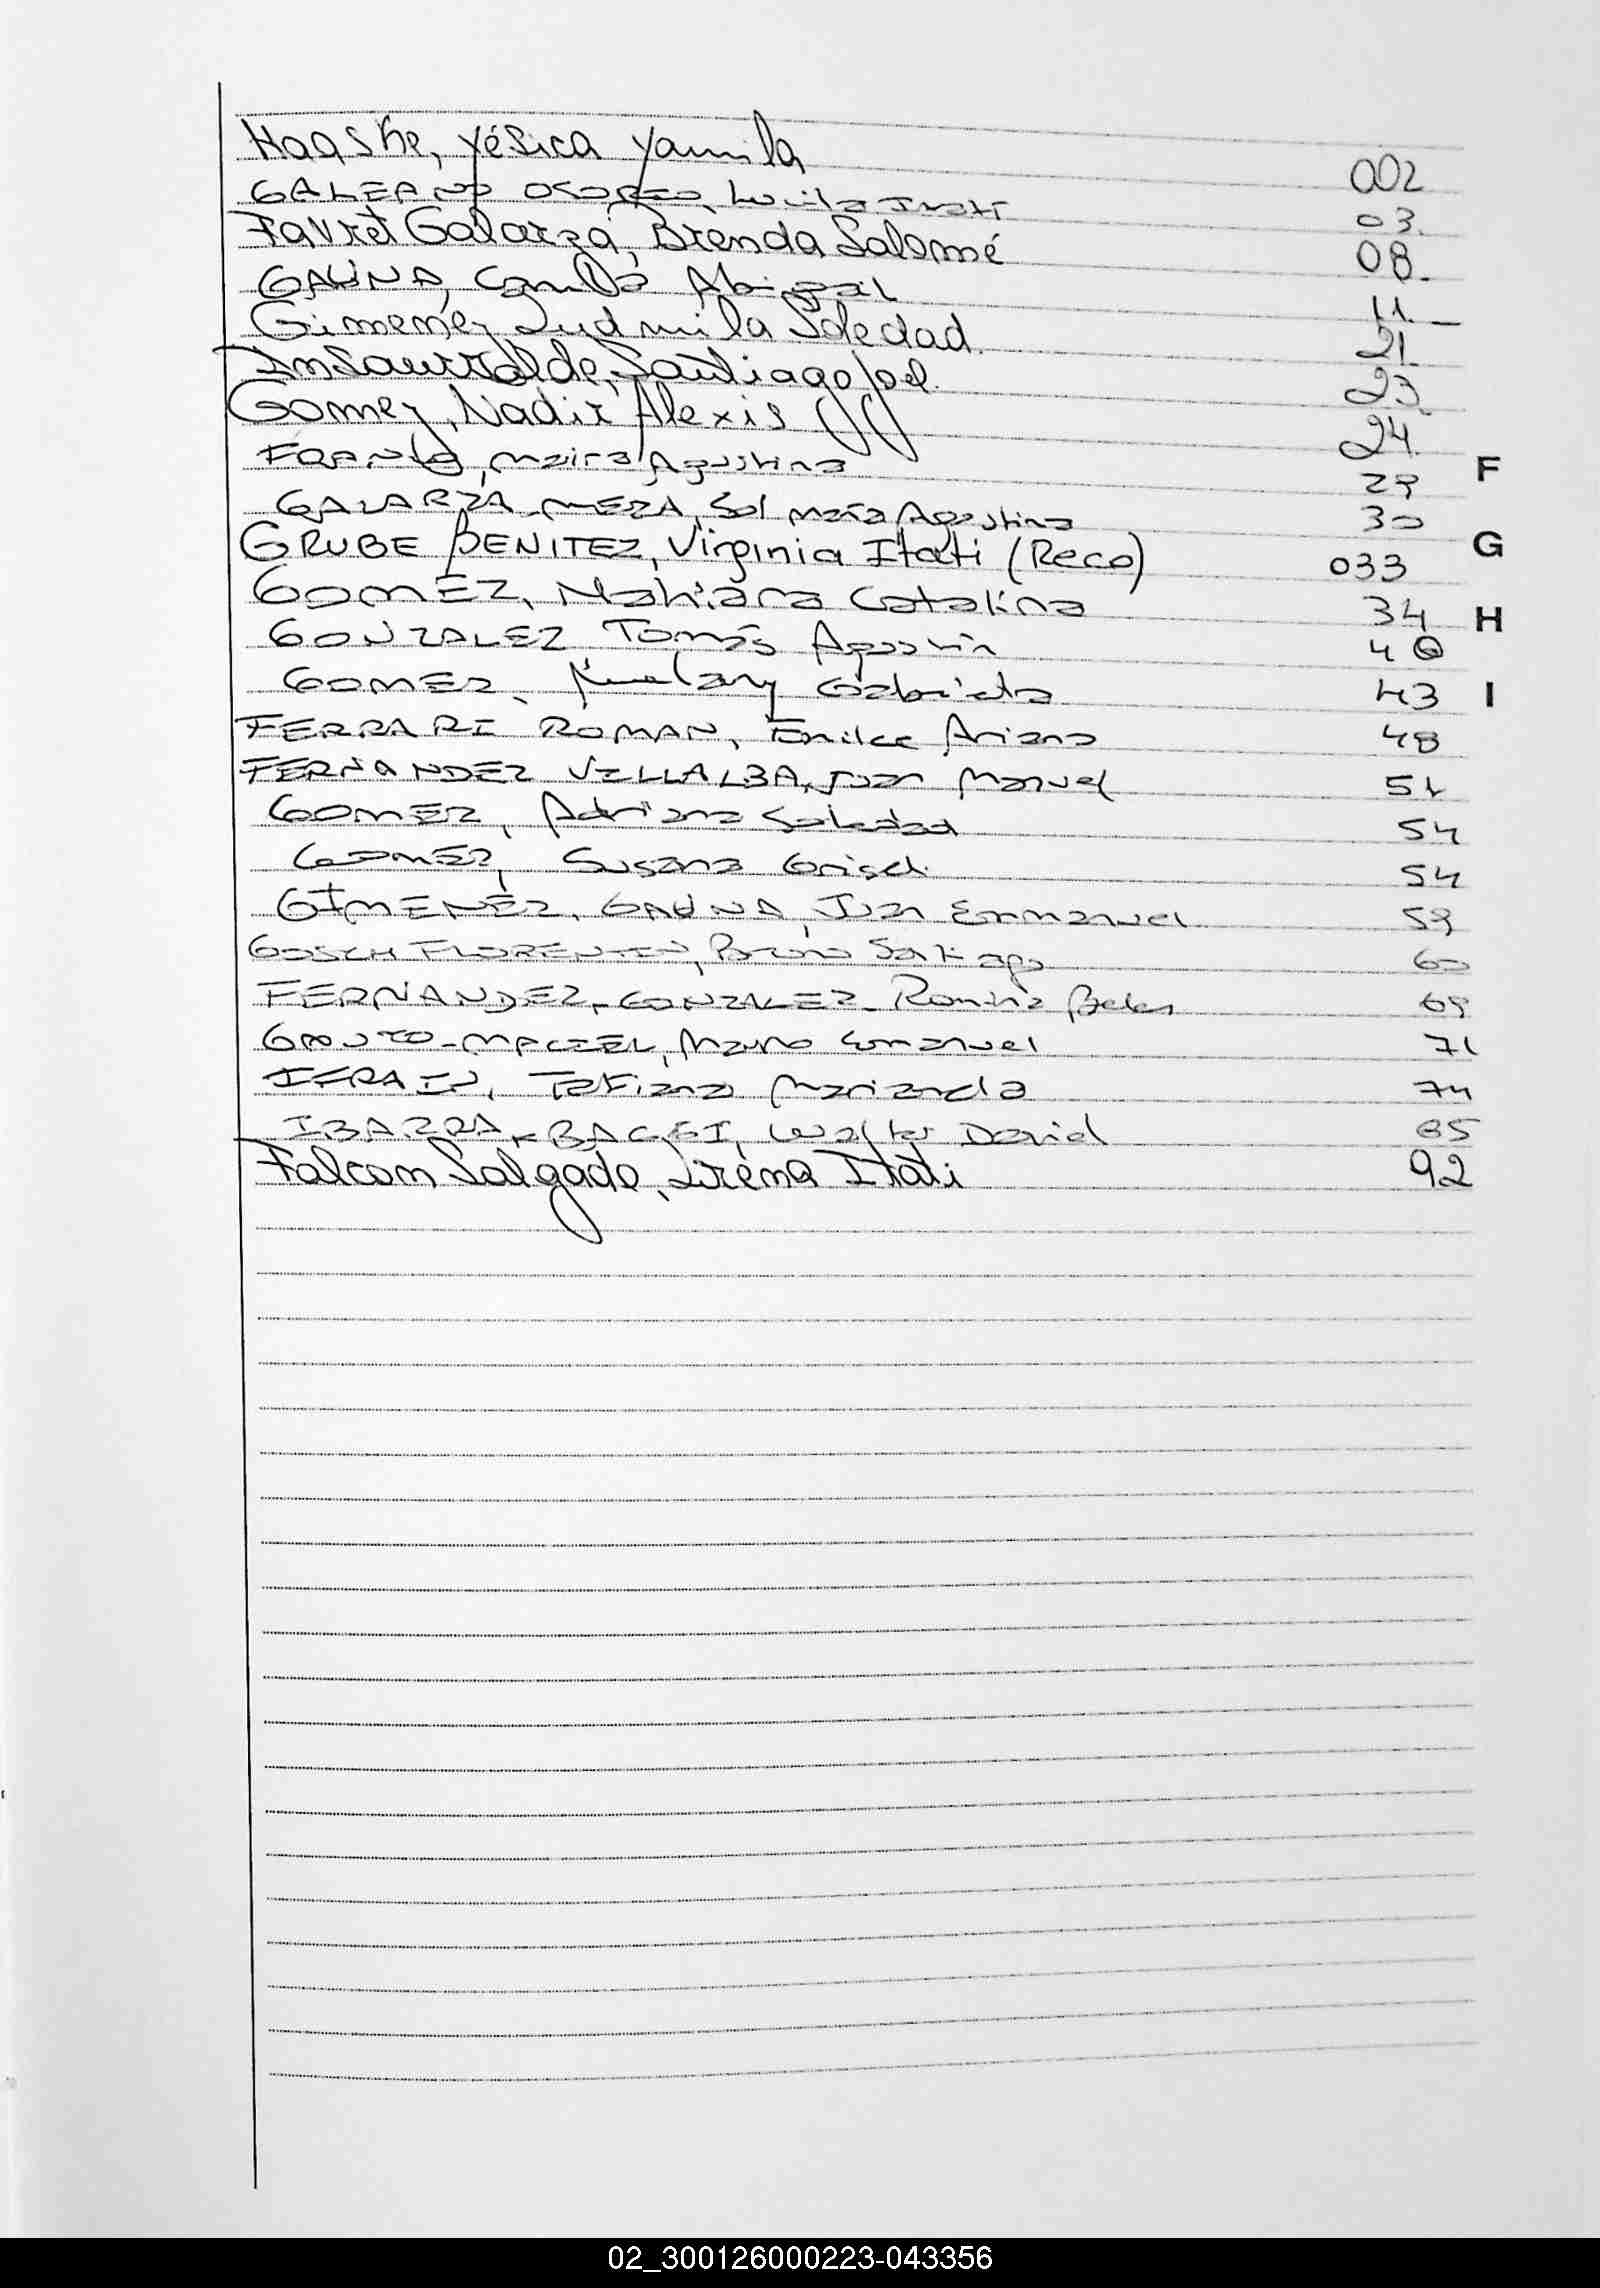 Haaske, Yésica Yamila 002
GALEANO OSORIO, Lucila Itatí 03.
Favret Galarza, Brenda Salomé 08.
GAUNA, Camila Abigail 11.
Gimenez Ludmila Soledad. 21.
Insaurralde, Santiago Joel. 23
Gomez, Nadir Alexis 24.
FRANCO, Maira Agustina 29
GALARZA-MEZA, Sol María Agostina 30
GRUBE BENITEZ, Virginia Itatí (Reco) 033
GOMEZ, Nahiara Catalina 34
GONZALEZ Tomás Agustín 40
GOMEZ, Gabriela 43
FERRARI ROMAN, Emilce Ariana 48
FERNANDEZ VILLALBA, Juan Manuel 51
GOMEZ, Adriana Soledad 54
GOMEZ, Susana Grisel 54
GIMENEZ, GAUNA, Juan Emmanuel 59
GOSCH FLORENTIN, Bruno Santiago 60
FERNANDEZ-GONZALEZ Romina Belen 69
MACIEL, Mauro Emanuel 71
IFRAIN, Tatiana Marianela 74
IBARRA-BAGGI, Walter David 85
Falcon Salgado, Lirena Itatí 92
F
G
H
I
02_300126000223-043356